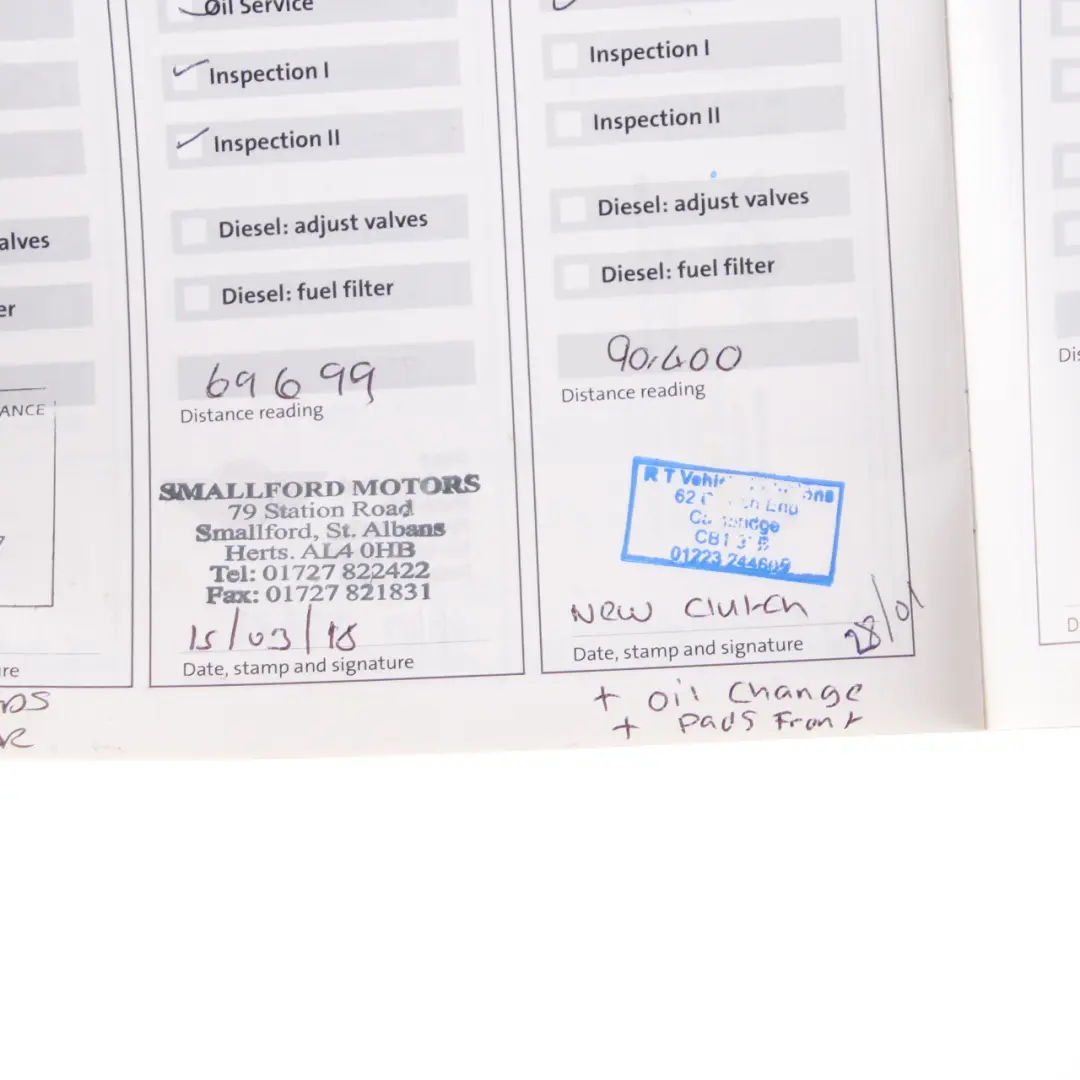 alves
er
ANCE
re
Oil Service
Inspection I
Inspection II
Diesel: adjust valves
Diesel: fuel filter
69699
Distance reading
SMALLFORD MOTORS
79 Station Road
Smallford, St. Albans
Herts. AL4 0HB
Tel: 01727 822422
Fax: 01727 821831
15/03/18
Date, stamp and signature
Inspection I
Inspection II
Diesel: adjust valves
Diesel: fuel filter
Distance reading
R T
62
CB1
01223
New Clutch
28/01
Date, stamp and signature
+ Oil Change
+ Pads Front
Dis
D